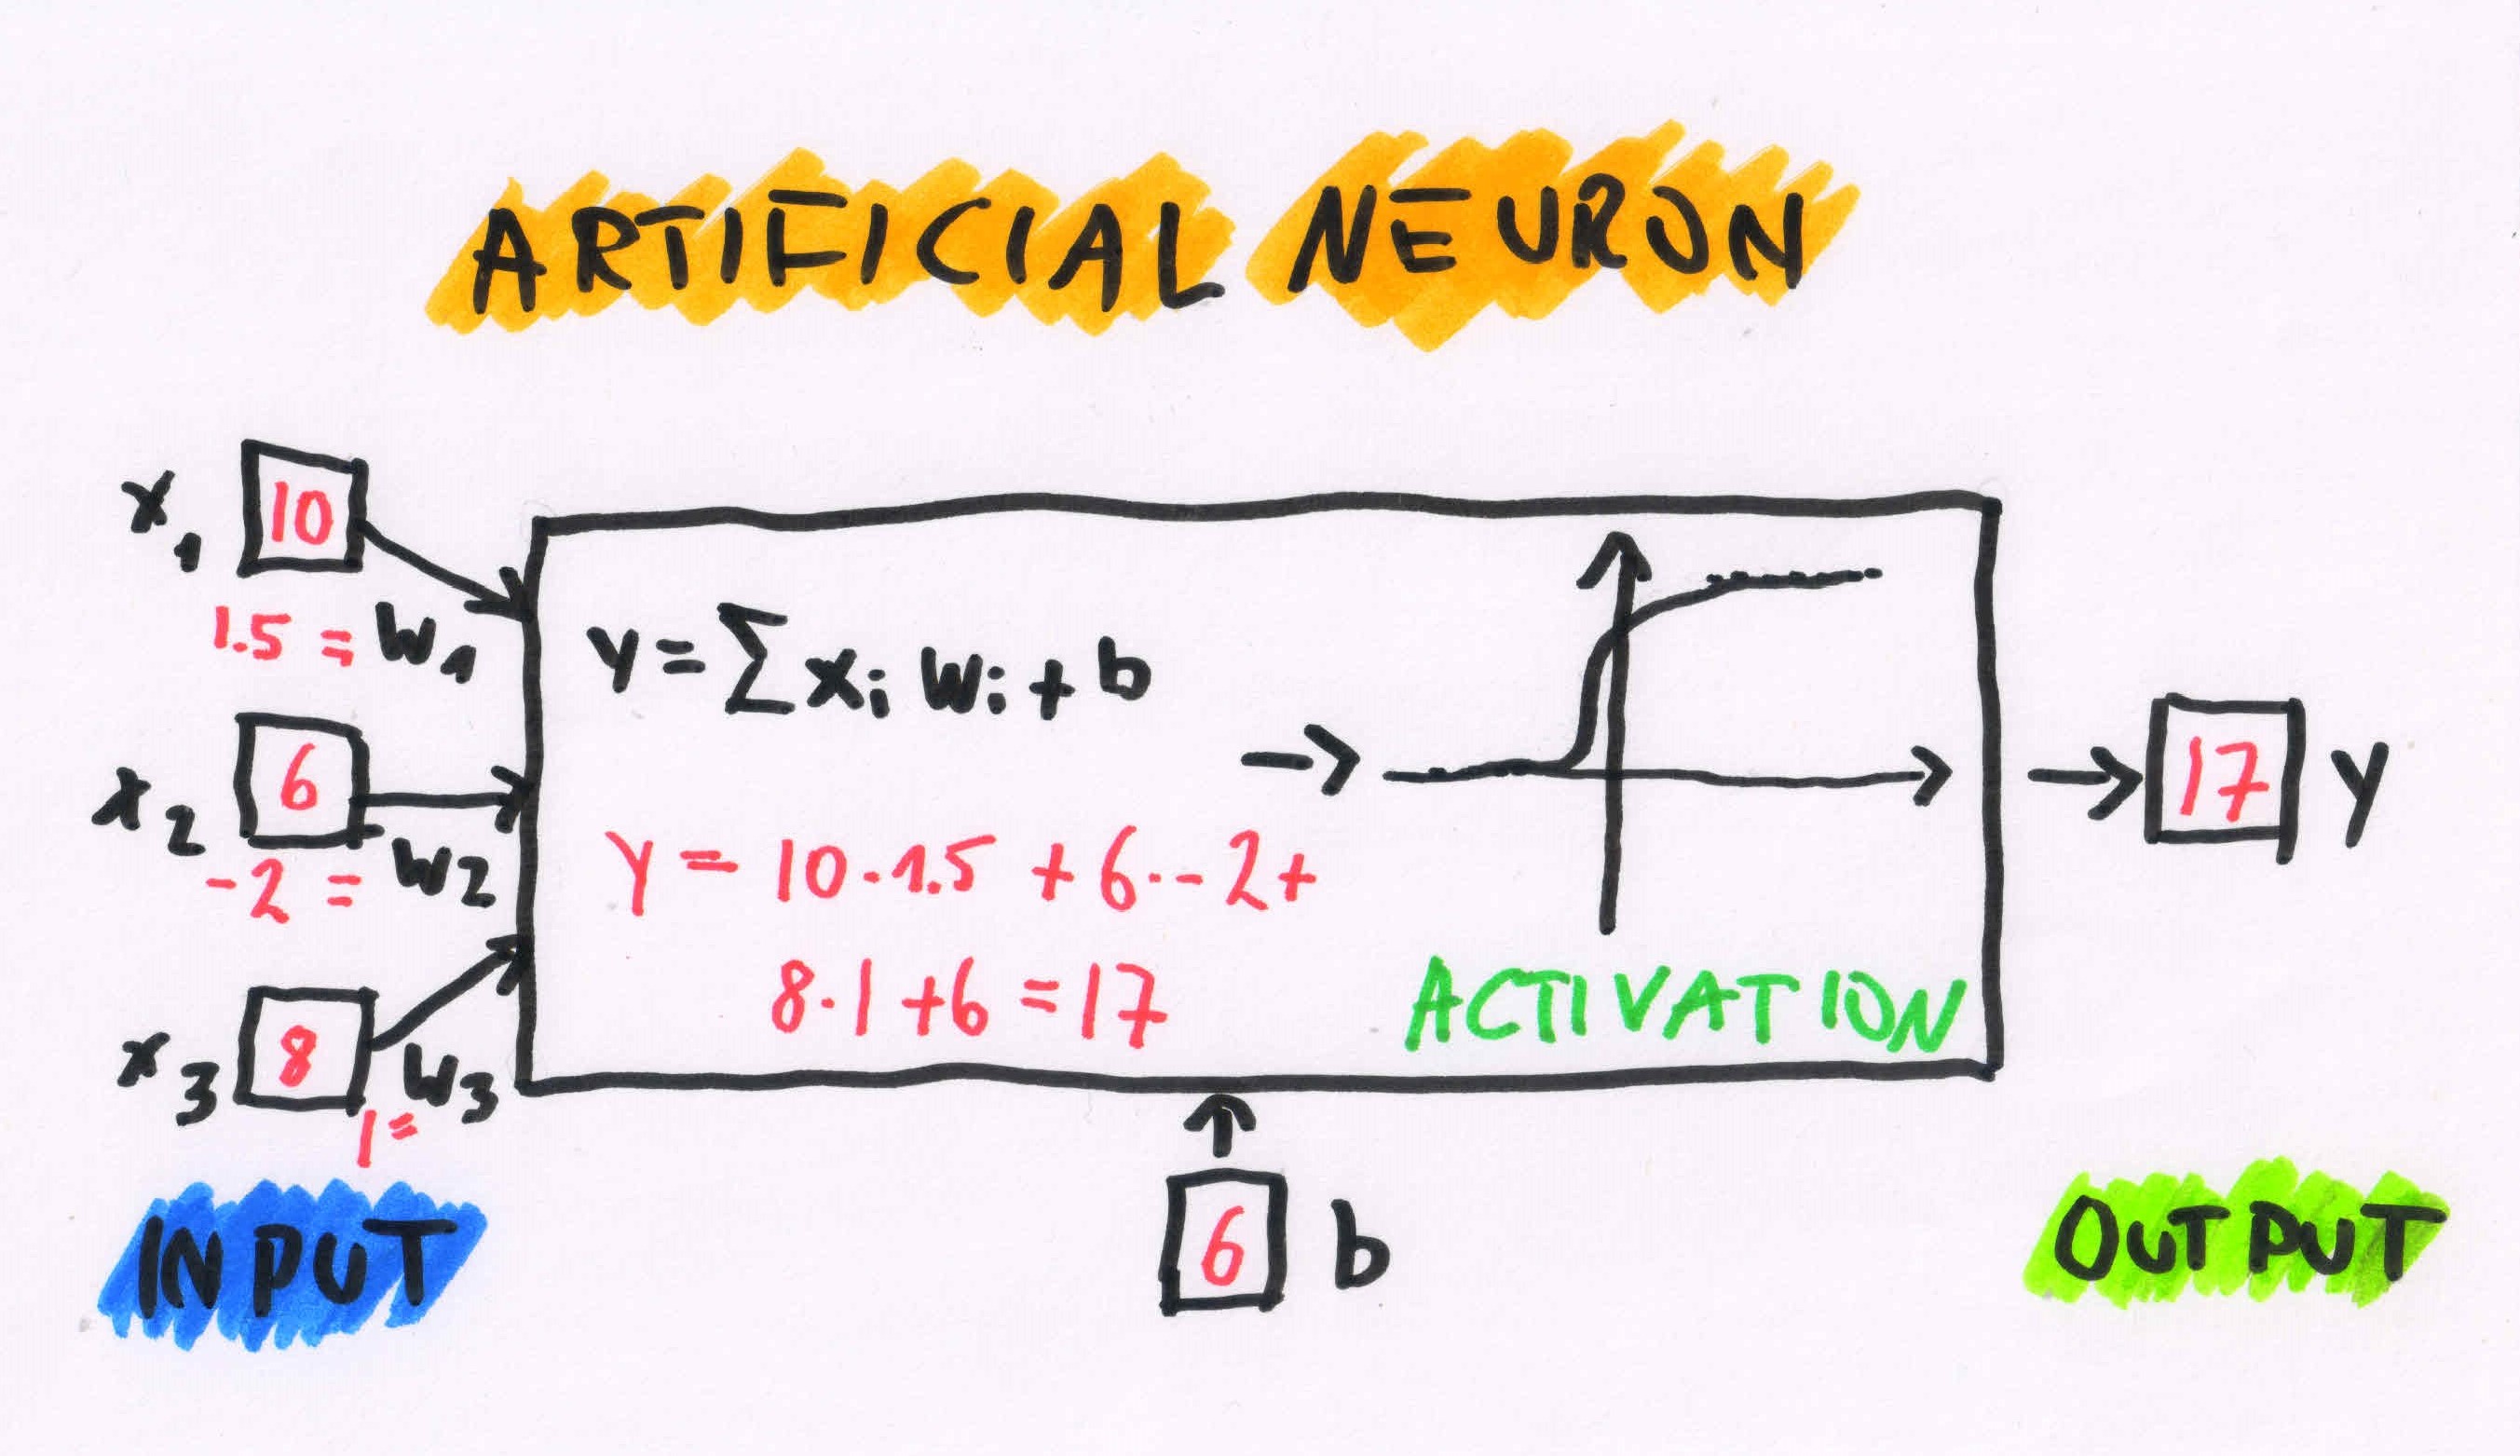 ARTIFICIAL NEURON
x1 10
1.5 = W1
x2 6
-2 = W2
x3 8
1= W3
y= ∑ xi wi + b
y = 10·1.5 + 6·-2+
8·1+6 =17
ACTIVATION
17 y
6 b
INPUT
OUTPUT